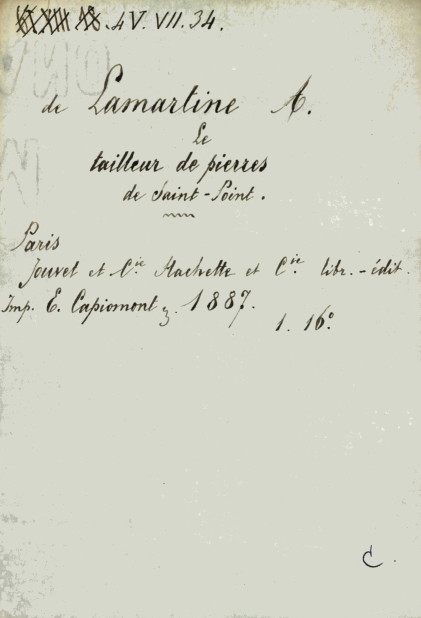 4 V. VII. 34.
de Lamartine A.
Le
tailleur de pierres
de Saint-Point.
Paris
Jouvet et C.ie Hachette et C.ie libr.-édit.
Imp. E. Capiomont 3. 1887.
1. 16°.
C.